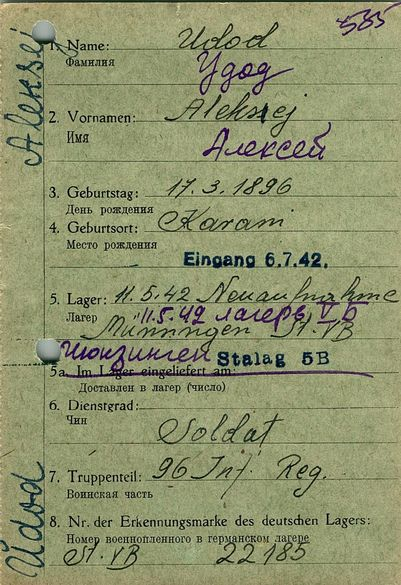 585
1. Name: Udod
Фамилия Удод
2. Vornamen: Aleksej
Имя Алексей
3. Geburtstag: 17.3.1896
День рождения
4. Geburtsort: Karani
Место рождения
Eingang 6.7.42.
5. Lager: 11.5.42 Neuaufnahme
Лагер 11.5.42 лагерь V b
St. VB
Stalag 5B
5a. Im Lager eingeliefert am:
Доставлен в лагер (число)
6. Dienstgrad:
Чин
Soldat
7. Truppenteil: 96 Inf. Reg.
Воинская часть
8. Nr. der Erkennungsmarke des deutschen Lagers:
Номер военнопленного в германском лагере
St. VB 22185
Udod Aleksej